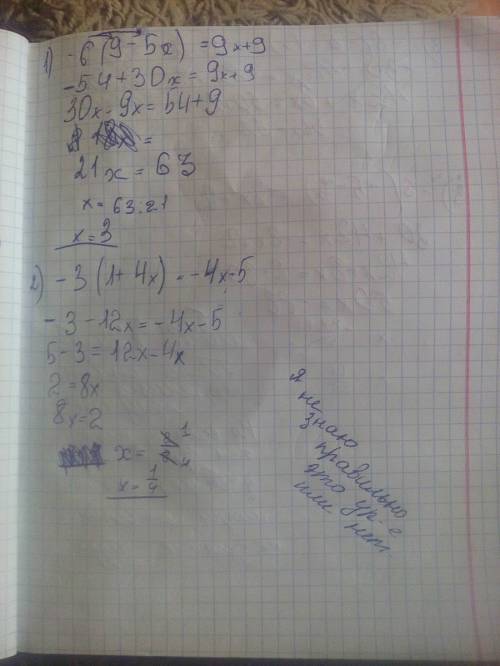 1) -6(9-5x) = 9x+9
-54+30x = 9x+9
30x-9x = 54+9
21x = 63
x = 63:21
x = 3
2) -3(1+4x) = -4x-5
-3-12x = -4x-5
5-3 = 12x-4x
2 = 8x
8x = 2
x =
x = 1/4
Я
не
знаю
правильно
это ур-е
или нет